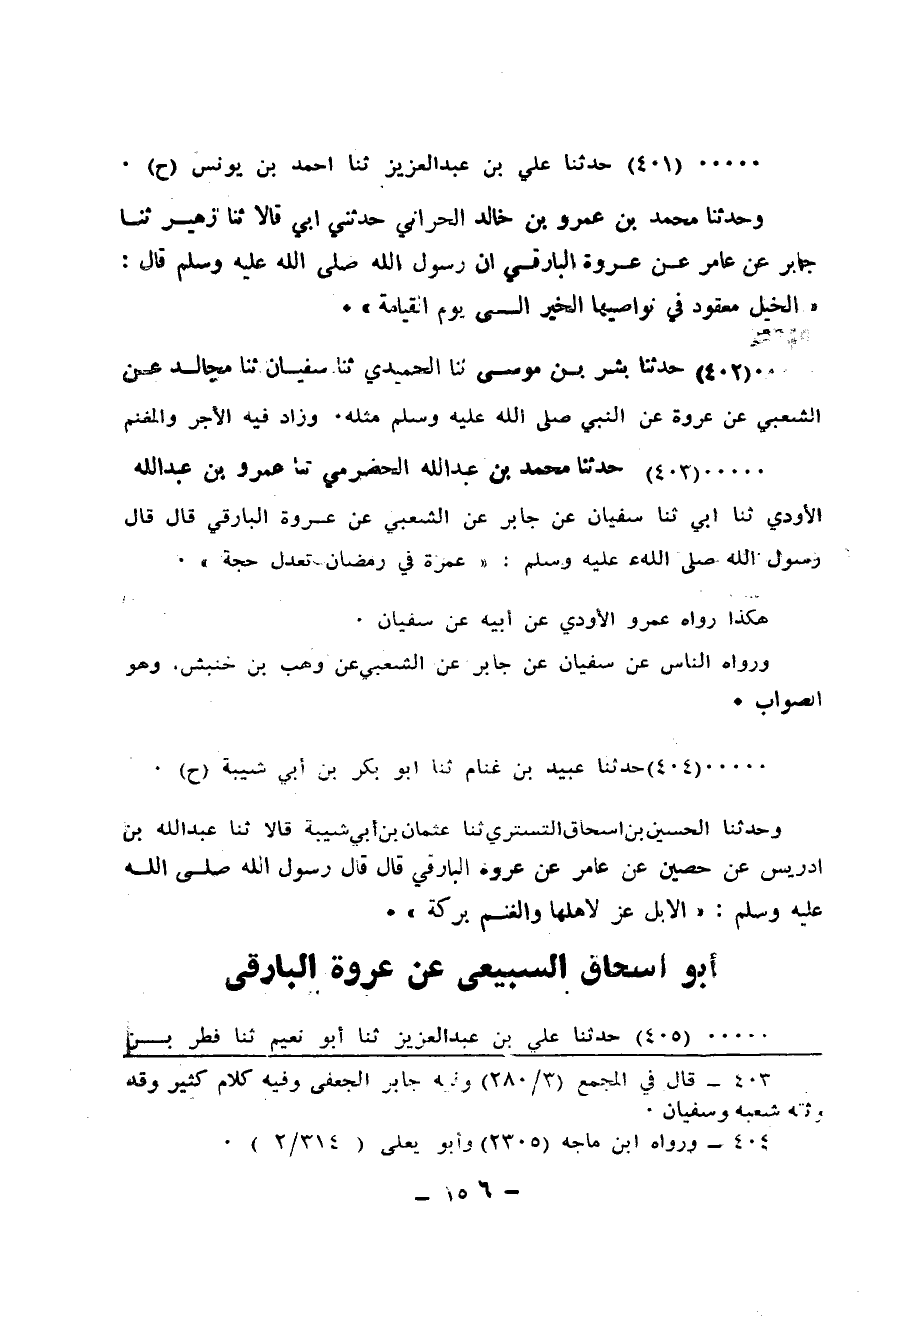 ٠٠٠٠٠ (٤٠١) حدثنا علي بن عبدالعزيز ثنا احمد بن يونس (ح) ٠
وحدثنا محمد بن عمرو بن خالد الحراني حدثني ابي قالا ثنا زهيــر ثنــا
جابر عن عامر عــن عــروة البارقــي ان رسول الله صلى الله عليه وسلم قال :
« الخيل معقود في نواصيها الخير الــى يوم القيامة » ٠
٠٠(٤٠٢) حدثنا بشر بــن موســى ثنا الحميدي ثنا سفيــان ثنا مجالــد عــن
الشعبي عن عروة عن النبي صلى الله عليه وسلم مثله٠ وزاد فيه الأجر والمغنم
٠٠٠٠٠(٤٠٣) حدثنا محمد بن عبدالله الحضرمي ثنا عمرو بن عبدالله
الأودي ثنا ابي ثنا سفيان عن جابر عن الشعبي عن عــروة البارقي قال قال
رسول الله صلى اللهء عليه وسلم : « عمرة في رمضان تعدل حجة » ٠
هكذا رواه عمرو الأودي عن أبيه عن سفيان ٠
ورواه الناس عن سفيان عن جابر عن الشعبي عن وهب بن خنبش، وهو
الصواب ٠
٠٠٠٠٠(٤٠٤)حدثنا عبيد بن غنام ثنا ابو بكر بن أبي شيبة (ح) ٠
وحدثنا الحسين بن اسحاق التستري ثنا عثمان بن أبي شيبة قالا ثنا عبدالله بن
ادريس عن حصين عن عامر عن عروة البارقي قال قال رسول الله صلــى اللــه
عليه وسلم : « الابل عز لاهلها والغنــم بركة » ٠
أبو اسحاق السبيعى عن عروة البارقى
٠٠٠٠٠ (٤٠٥) حدثنا علي بن عبدالعزيز ثنا أبو نعيم ثنا فطر بــن
٤٠٣ ــ قال في المجمع (٢٨٠/٣) وفيه جابر الجعفى وفيه كلام كثير وقد
وثقه شعبه وسفيان ٠
٤٠٤ ــ ورواه ابن ماجه (٢٣٠٥) وأبو يعلى ( ٢/٣١٤ ) ٠
ــ ١٥٦ ــ